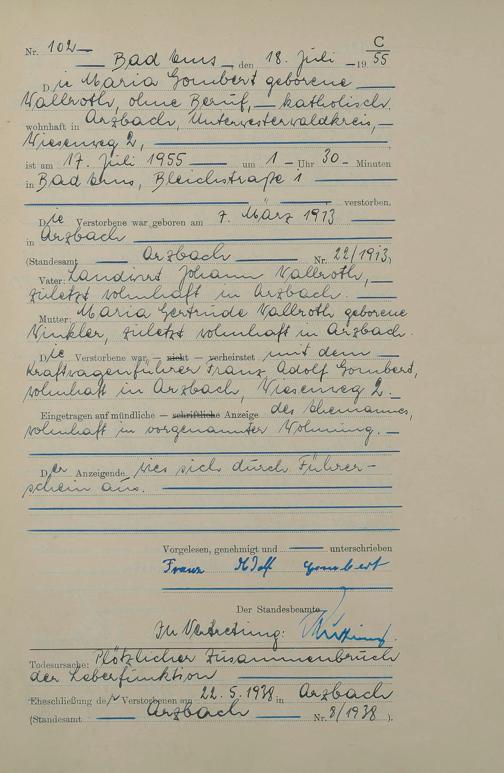 C
Nr. 102
Bad Ems, den 18. Juli 1955
Die Maria Gombert geborene
Wallroth, ohne Beruf, katholisch,
wohnhaft in Arzbach, Unterwesterwaldkreis,
Wiesenweg 2,
ist am 17. Juli 1955 um 1 Uhr 30 Minuten
in Bad Ems, Bleichstraße 1
verstorben.
Die Verstorbene war geboren am 7. März 1913
in Arzbach
(Standesamt Arzbach Nr. 22/1913)
Vater: Landwirt Johann Wallroth,
zuletzt wohnhaft in Arzbach.
Mutter: Maria Gertrude Wallroth geborene
Winkler, zuletzt wohnhaft in Arzbach.
Die Verstorbene war — nicht — verheiratet mit dem
Kraftwagenführer Franz Adolf Gombert,
wohnhaft in Arzbach, Wiesenweg 2.
Eingetragen auf mündliche — schriftliche Anzeige des Ehemannes,
wohnhaft in vorgenannter Wohnung.
Der Anzeigende wies sich durch Führer-
schein aus.
Vorgelesen, genehmigt und unterschrieben
Franz Adolf Gombert
Der Standesbeamte
In Vertretung:
Todesursache: Plötzlicher Zusammenbruch
der Leberfunktion
Eheschließung der Verstorbenen am 22.5.1938 in Arzbach
(Standesamt Arzbach Nr. 8/1938).